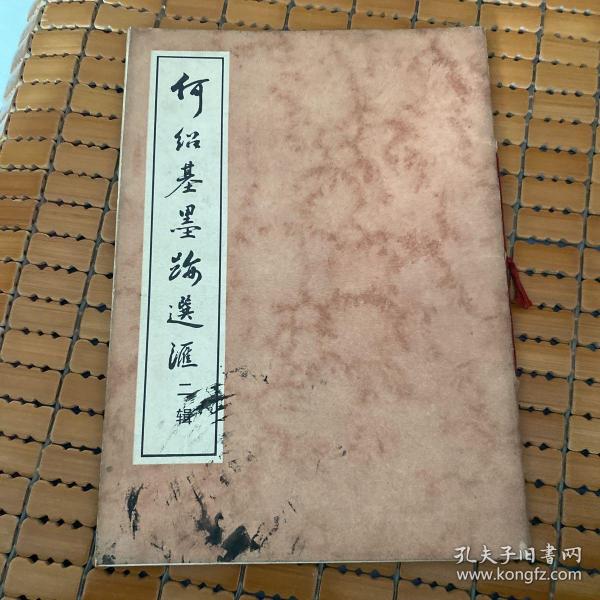 何绍基墨跡選滙二辑
孔夫子旧書网
www.kongfz.com